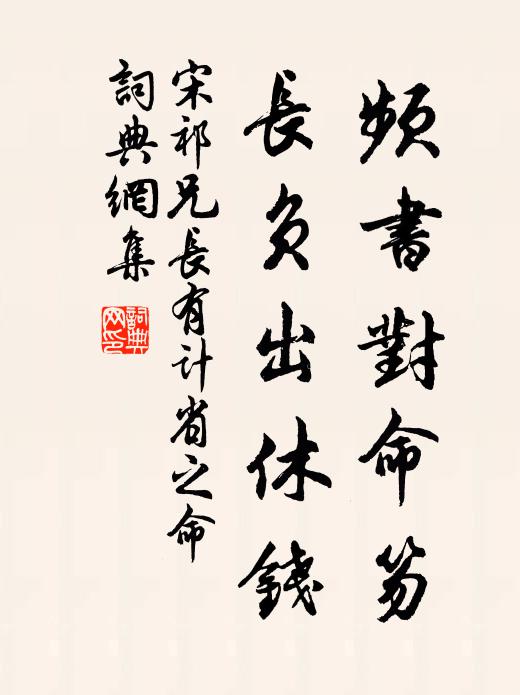 頻書對命笏
長負出休錢
宋祁兄長有計省之命
詞典網集
詞典
网印